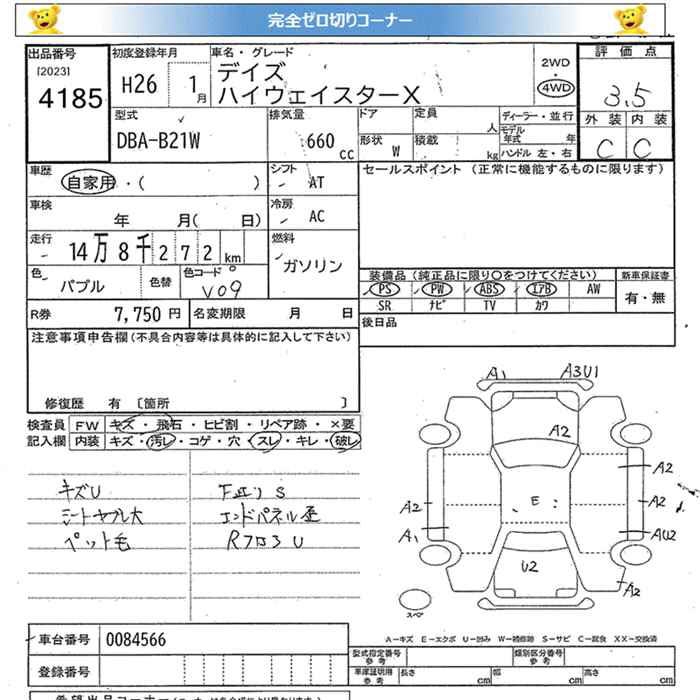 完全ゼロ切りコーナー
出品番号 初度登録年月 車名・グレード 評価点
[2023] H26 1月 デイズ 2WD
4185 ハイウェイスターX 4WD 3.5
外装 内装
C C
型式 排気量 ドア 定員 ディーラー・並行
DBA-B21W 660cc 人 モデル年式 年
形状 W 積載 kg ハンドル 左・右
車歴 シフト セールスポイント (正常に機能するものに限ります)
自家用・( ) AT
車検 冷房
年 月( 日) AC
走行 燃料
14万8千272km ガソリン
色 色替 色コード 装備品(純正品に限り○をつけてください) 新車保証書
パプル V09 PS PW ABS エアB AW 有・無
SR ナビ TV カワ
R券 7,750円 名変期限 月 日 後日品
注意事項申告欄(不具合内容等は具体的に記入して下さい)
修復歴 有 〔箇所 〕
検査員 FW キズ・飛石・ヒビ割・リペア跡・×要
記入欄 内装 キズ・汚レ・コゲ・穴・スレ・キレ・破レ
キズU S
シートヤブレ大 エンドパネル歪
ペット毛 Rフロ3 U
A1 A3U1
A2
A2
A2 E A2
A1 AU2
U2
A2
スペア
A－キズ E－エクボ U－凹み W－補修跡 S－サビ C－腐食 XX－交換済
車台番号 0084566 型式指定番号 参考 類別区分番号 参考
登録番号 車庫証明用 参考 長さ cm 幅 cm 高さ cm